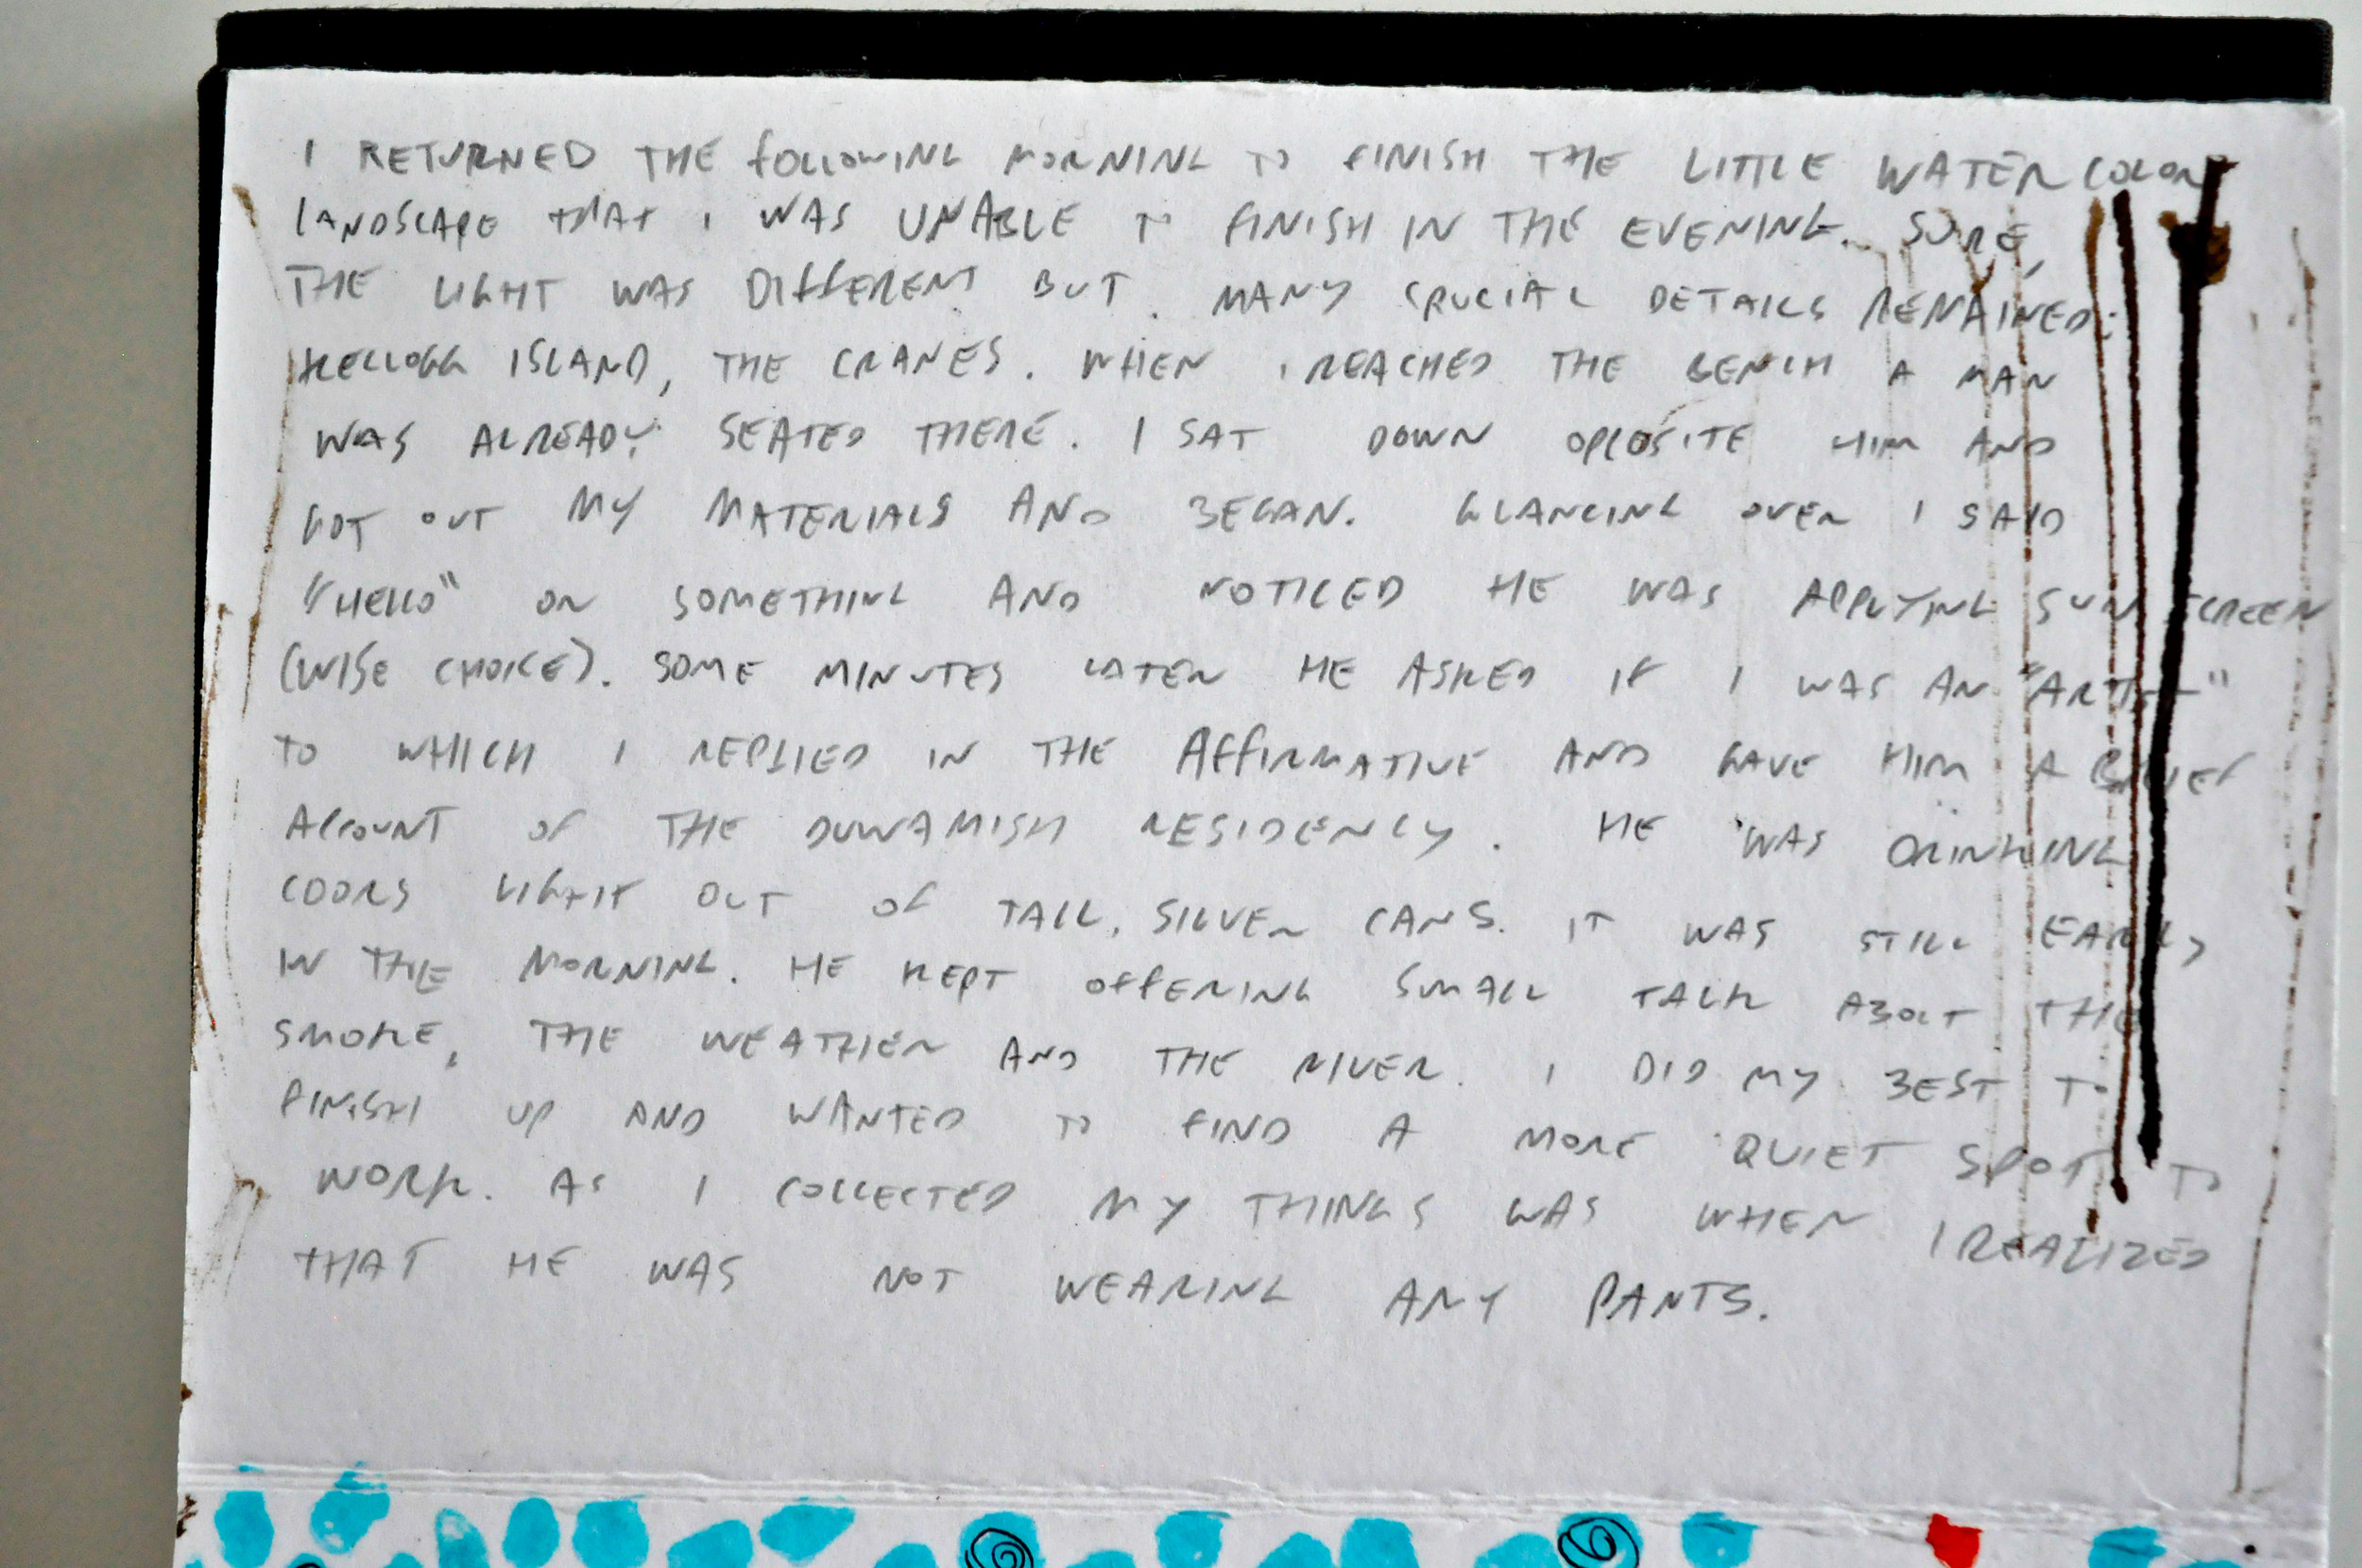 I RETURNED THE FOLLOWING MORNING TO FINISH THE LITTLE WATERCOLOR
LANDSCAPE THAT I WAS UNABLE TO FINISH IN THE EVENING. SURE,
THE LIGHT WAS DIFFERENT BUT MANY CRUCIAL DETAILS REMAINED:
KELLOGG ISLAND, THE CRANES. WHEN I REACHED THE BENCH A MAN
WAS ALREADY SEATED THERE. I SAT DOWN OPPOSITE HIM AND
GOT OUT MY MATERIALS AND BEGAN. GLANCING OVER I SAID
"HELLO" OR SOMETHING AND NOTICED HE WAS APPLYING SUNSCREEN
(WISE CHOICE). SOME MINUTES LATER HE ASKED IF I WAS AN "ARTIST"
TO WHICH I REPLIED IN THE AFFIRMATIVE AND GAVE HIM A BRIEF
ACCOUNT OF THE DUWAMISH RESIDENCY. HE WAS DRINKING
COORS LIGHT OUT OF TALL, SILVER CANS. IT WAS STILL EARLY
IN THE MORNING. HE KEPT OFFERING SMALL TALK ABOUT THE
SMOKE, THE WEATHER AND THE RIVER. I DID MY BEST TO
FINISH UP AND WANTED TO FIND A MORE QUIET SPOT TO
WORK. AS I COLLECTED MY THINGS WAS WHEN I REALIZED
THAT HE WAS NOT WEARING ANY PANTS.